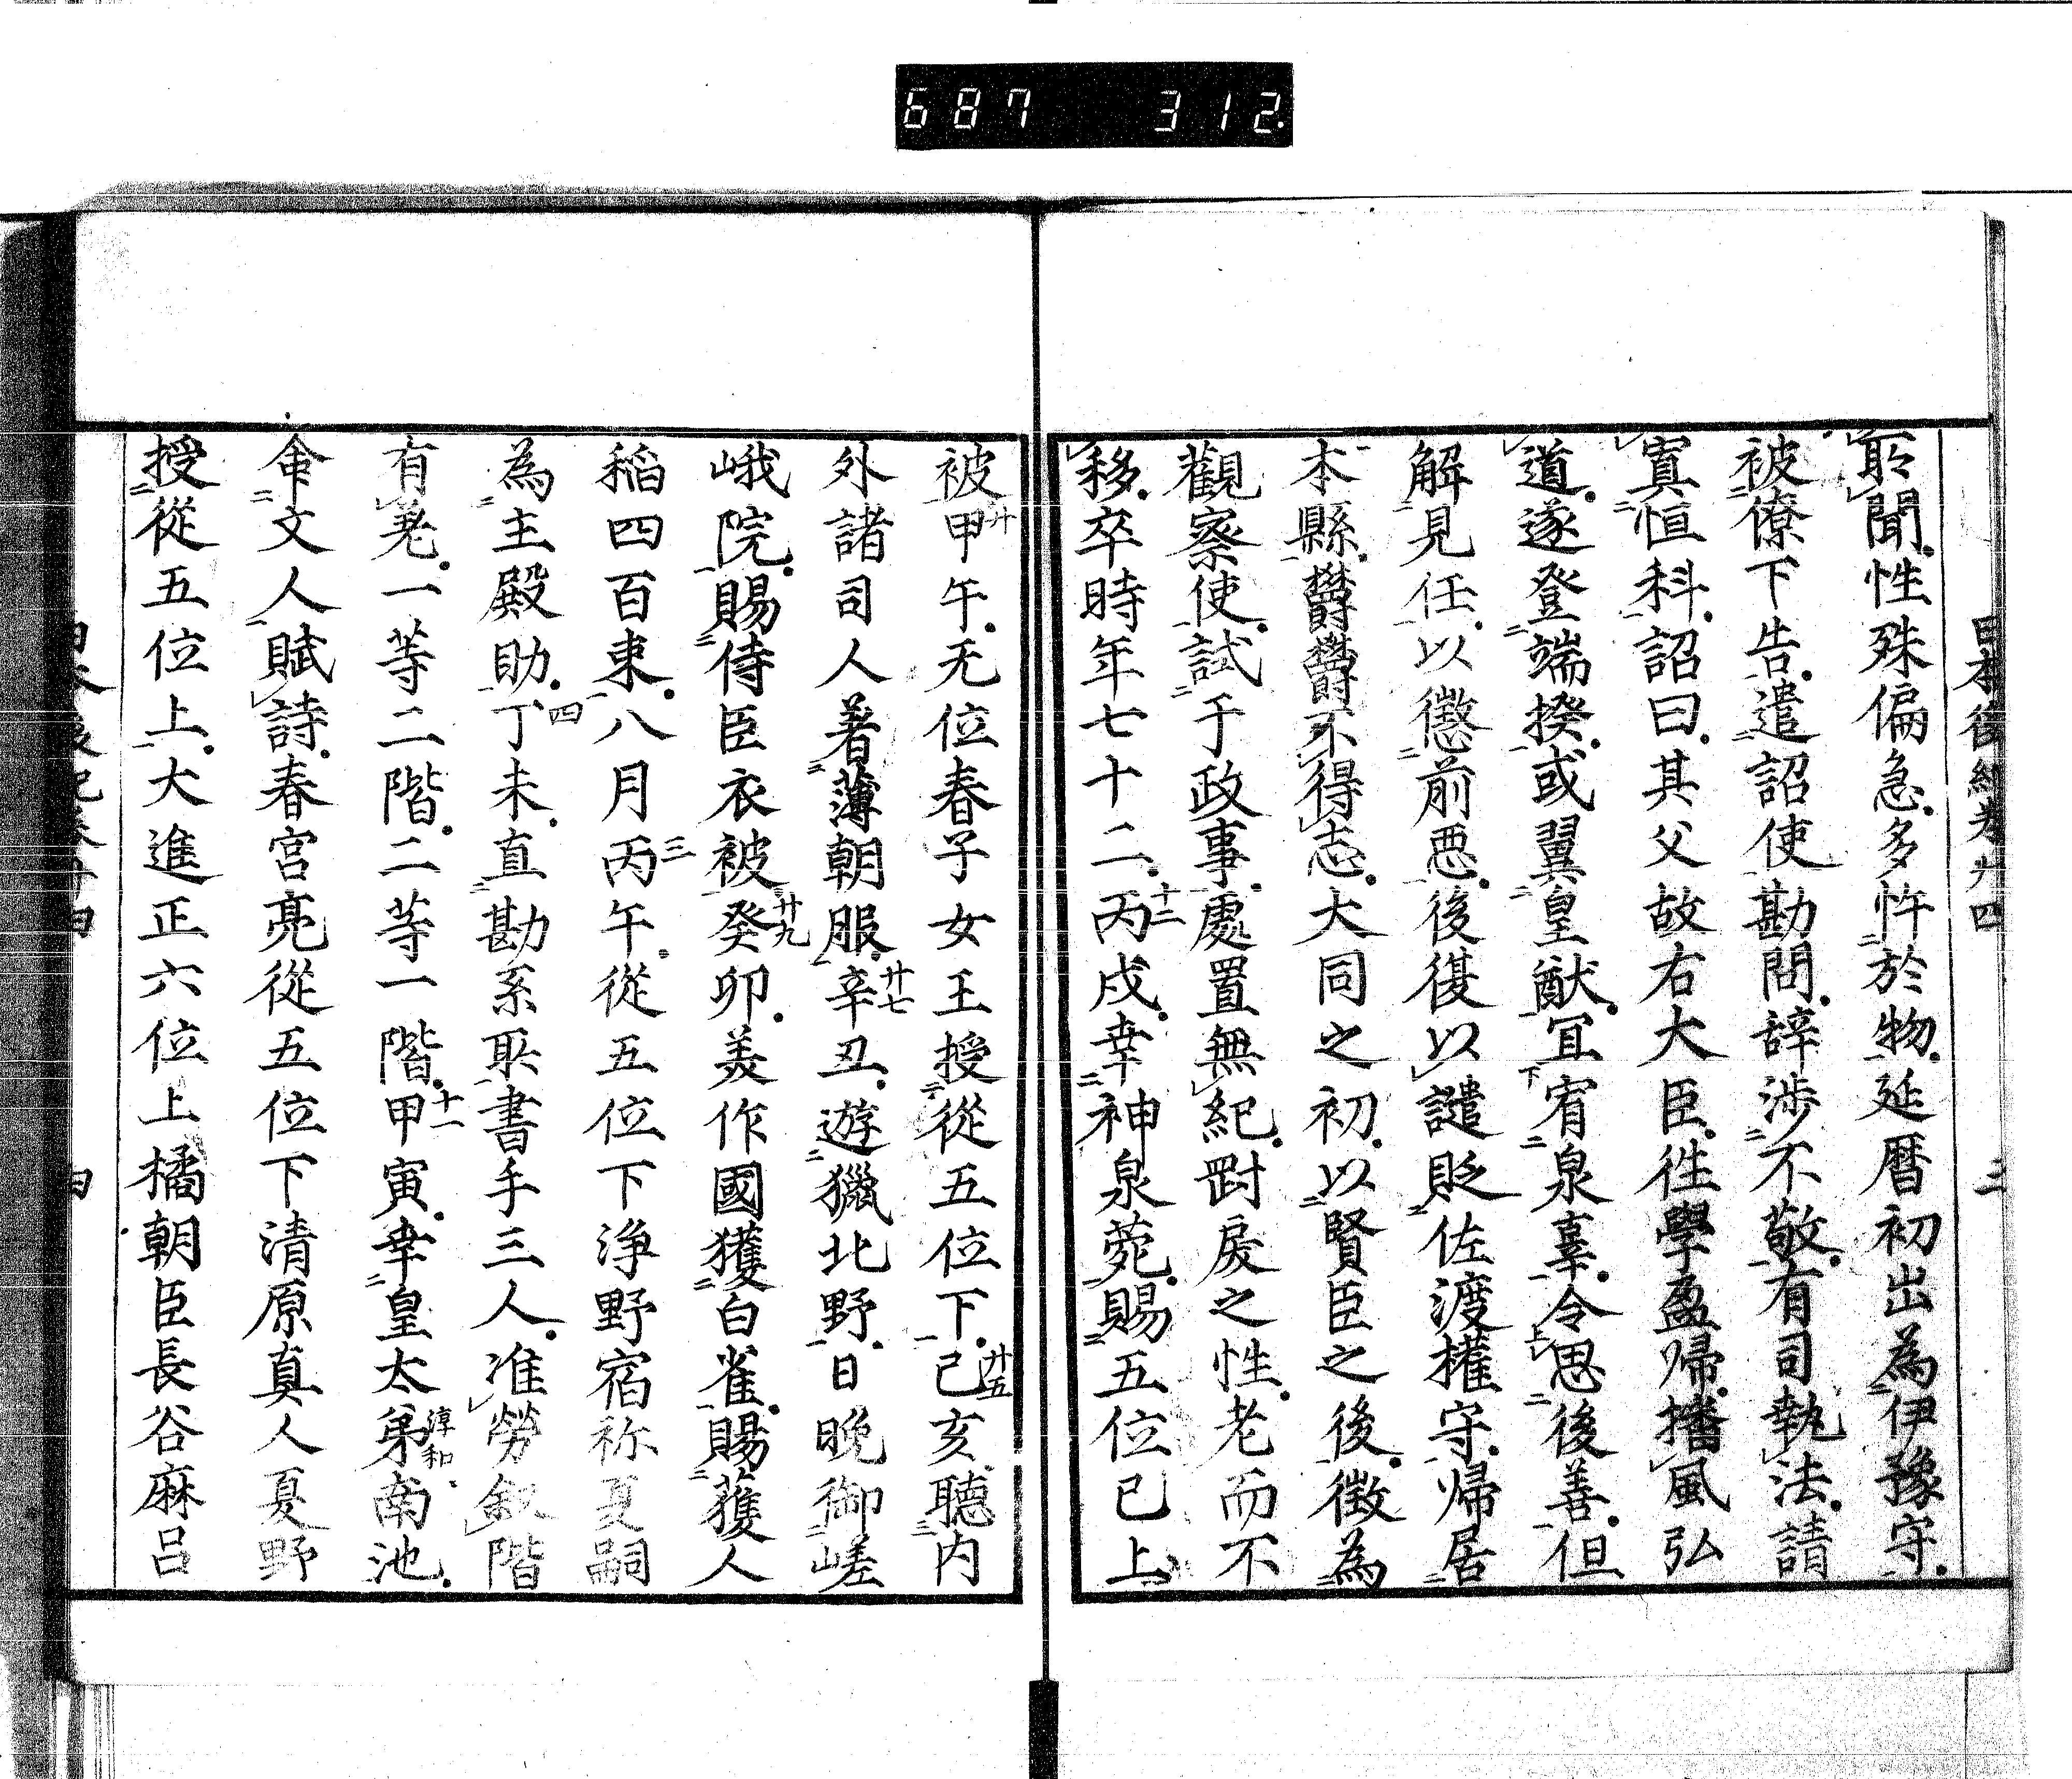 687 312.
日本後紀卷廿四 三
所聞性殊偏急多忤於物延曆初出為伊豫守
被僚下告遣詔使勘問辞渉不敬有司執法請
寘恒科詔曰其父故右大臣徃學盈歸播風弘
道遂登端揆或翼皇猷宜宥泉辜令思後善但
解見任以懲前悪後復以譴貶佐渡權守歸居
本縣欝欝不得志大同之初以賢臣之後徴為
觀察使試于政事處置無紀對戻之性老而不
移卒時年七十二丙戌幸神泉苑賜五位已上
十二
被甲午无位春子女王授從五位下己亥聴内
廿
廿五
外諸司人著薄朝服辛丑遊獵北野日晩御嵯
廿七
峨院賜侍臣衣被癸卯美作國獲白雀賜獲人
廿九
稲四百束八月丙午從五位下浄野宿祢夏嗣
三
為主殿助丁未直勘系所書手三人准勞叙階
四
有差一等二階二等一階甲寅幸皇太弟南池
十一
淳和
命文人賦詩春宮亮從五位下清原真人夏野
授從五位上大進正六位上橘朝臣長谷麻呂